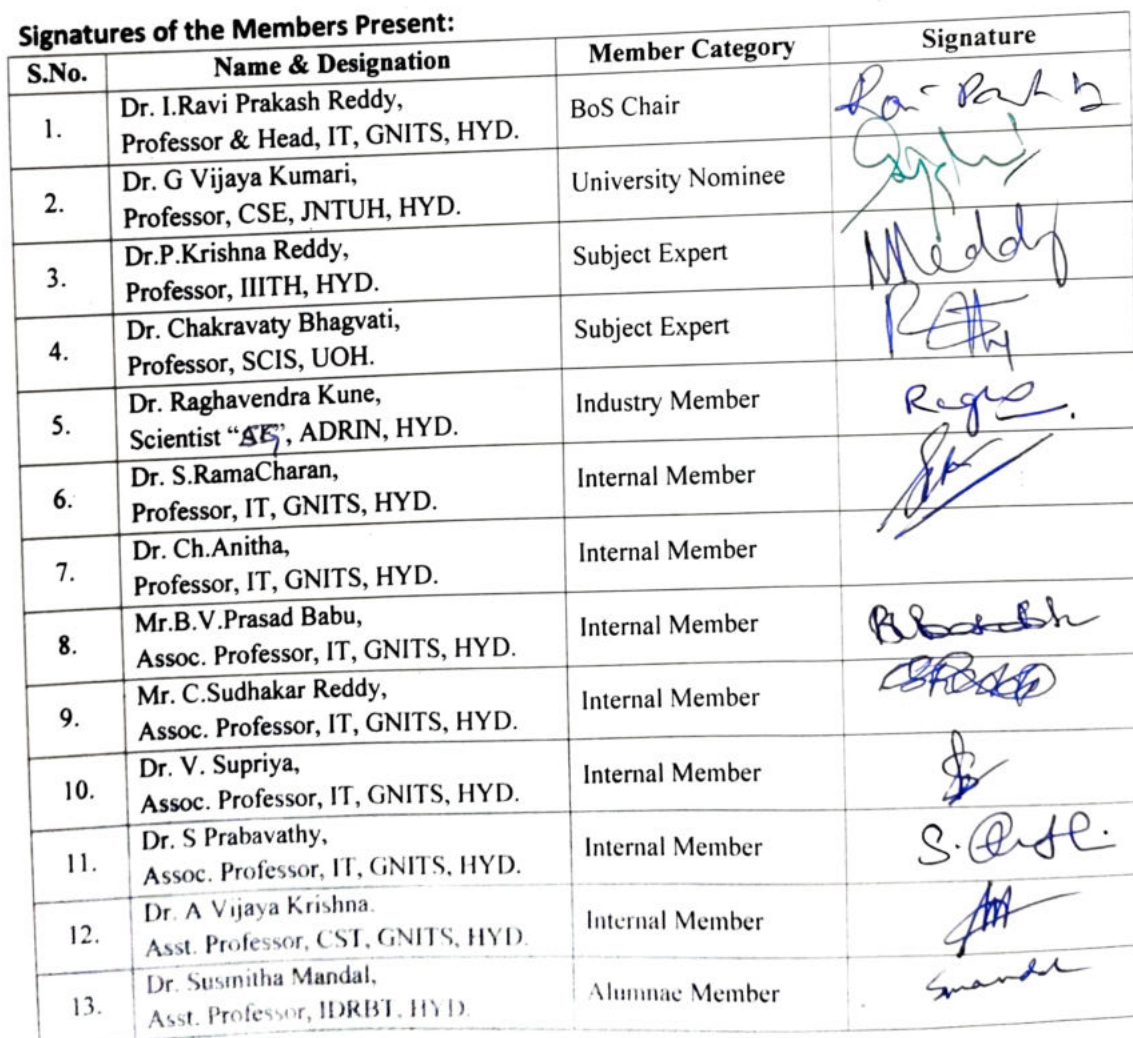 Signatures of the Members Present:
S.No. Name & Designation Member Category Signature
1. Dr. I.Ravi Prakash Reddy,
Professor & Head, IT, GNITS, HYD. BoS Chair
2. Dr. G Vijaya Kumari,
Professor, CSE, JNTUH, HYD. University Nominee
3. Dr.P.Krishna Reddy,
Professor, IIITH, HYD. Subject Expert
4. Dr. Chakravaty Bhagvati,
Professor, SCIS, UOH. Subject Expert
5. Dr. Raghavendra Kune,
Scientist “ ”, ADRIN, HYD. Industry Member
6. Dr. S.RamaCharan,
Professor, IT, GNITS, HYD. Internal Member
7. Dr. Ch.Anitha,
Professor, IT, GNITS, HYD. Internal Member
8. Mr.B.V.Prasad Babu,
Assoc. Professor, IT, GNITS, HYD. Internal Member
9. Mr. C.Sudhakar Reddy,
Assoc. Professor, IT, GNITS, HYD. Internal Member
10. Dr. V. Supriya,
Assoc. Professor, IT, GNITS, HYD. Internal Member
11. Dr. S Prabavathy,
Assoc. Professor, IT, GNITS, HYD. Internal Member
12. Dr. A Vijaya Krishna.
Asst. Professor, CST, GNITS, HYD. Internal Member
13. Dr. Susmitha Mandal,
Asst. Professor, IDRBT, HYD. Alumnae Member